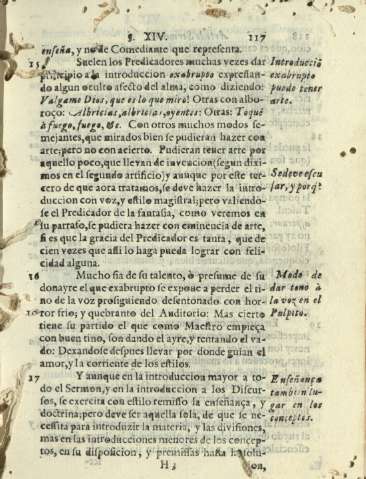 §. XIV. 117
enseña, y no de Comediante que representa.
15 Suelen los Predicadores muchas vezes dar
principio a la introduccion exabrupto expressan-
do algun oculto afecto del alma, como diziendo:
Valgame Dios, que es lo que miro! Otras con albo-
roço: Albricias, albricias, oyentes: Otras: Toquē
à fuego, fuego, &c. Con otros muchos modos se-
mejantes, que mirados bien se pudieran hazer con
arte; pero no con acierto. Pudieran tener arte por
aquello poco, que llevan de invencion (segun dixi-
mos en el segundo artificio) y aunque por este ter-
cero de que aora tratamos, se deve hazer la intro-
duccion con voz, y estilo magistral; pero valiendo-
se el Predicador de la fantasia, como veremos en
su parraso, se pudiera hazer con eminencia de arte,
si es que la gracia del Predicador es tanta, que de
cien vezes que assi lo haga pueda lograr con feli-
cidad alguna.
Introducciō
exabrupto
puede tener
arte.
Se deve escu
sar, y porq̃
16 Mucho fia de su talento, ò presume de su
donayre el que exabrupto se expone a perder el ti-
no de la voz prosiguiendo desentonado con hor-
ror frio; y quebranto del Auditorio: Mas cierto
tiene su partido el que como Maestro empieça
con buen tino, son dando el ayre, y tentando el va-
do: Dexandose despues llevar por donde guian el
amor, y la corriente de los estilos.
Modo de
dar tono à
la voz en el
Pulpito.
17 Y aunque en la introduccion mayor a to-
do el Sermon, y en la introduccion a los Discur-
sos, se exercita con estilo remisso la enseñança, y
doctrina; pero deve ser aquella sola, de que se ne-
cessita para introduzir la materia, y las divisiones,
mas en las introducciones menores de los concep-
tos, en su disposicion, y premissas hasta la solu-
Enseñança
tambien lu-
gar en los
conceptos.
H 3 on,